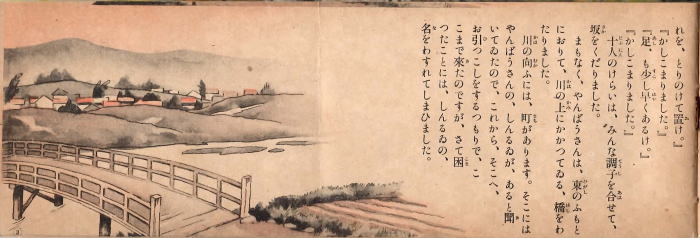 れを、とりのけて置け。』
『かしこまりました。』
『足、も少し早くあるけ。』
『かしこまりました。』
十人のけらいは、みんな調子を合せて、
坂をくだりました。
まもなく、やんばうさんは、東のふもと
におりて、川の上にかかつてゐる、橋をわ
たりました。
川の向ふには、町があります。そこには
やんばうさんの、しんるゐが、あると聞
いてゐたので、これから、そこへ、
お引つこしをするつもりで、こ
こまで來たのですが、さて困
つたことには、しんるゐの、
名をわすれてしまひました。